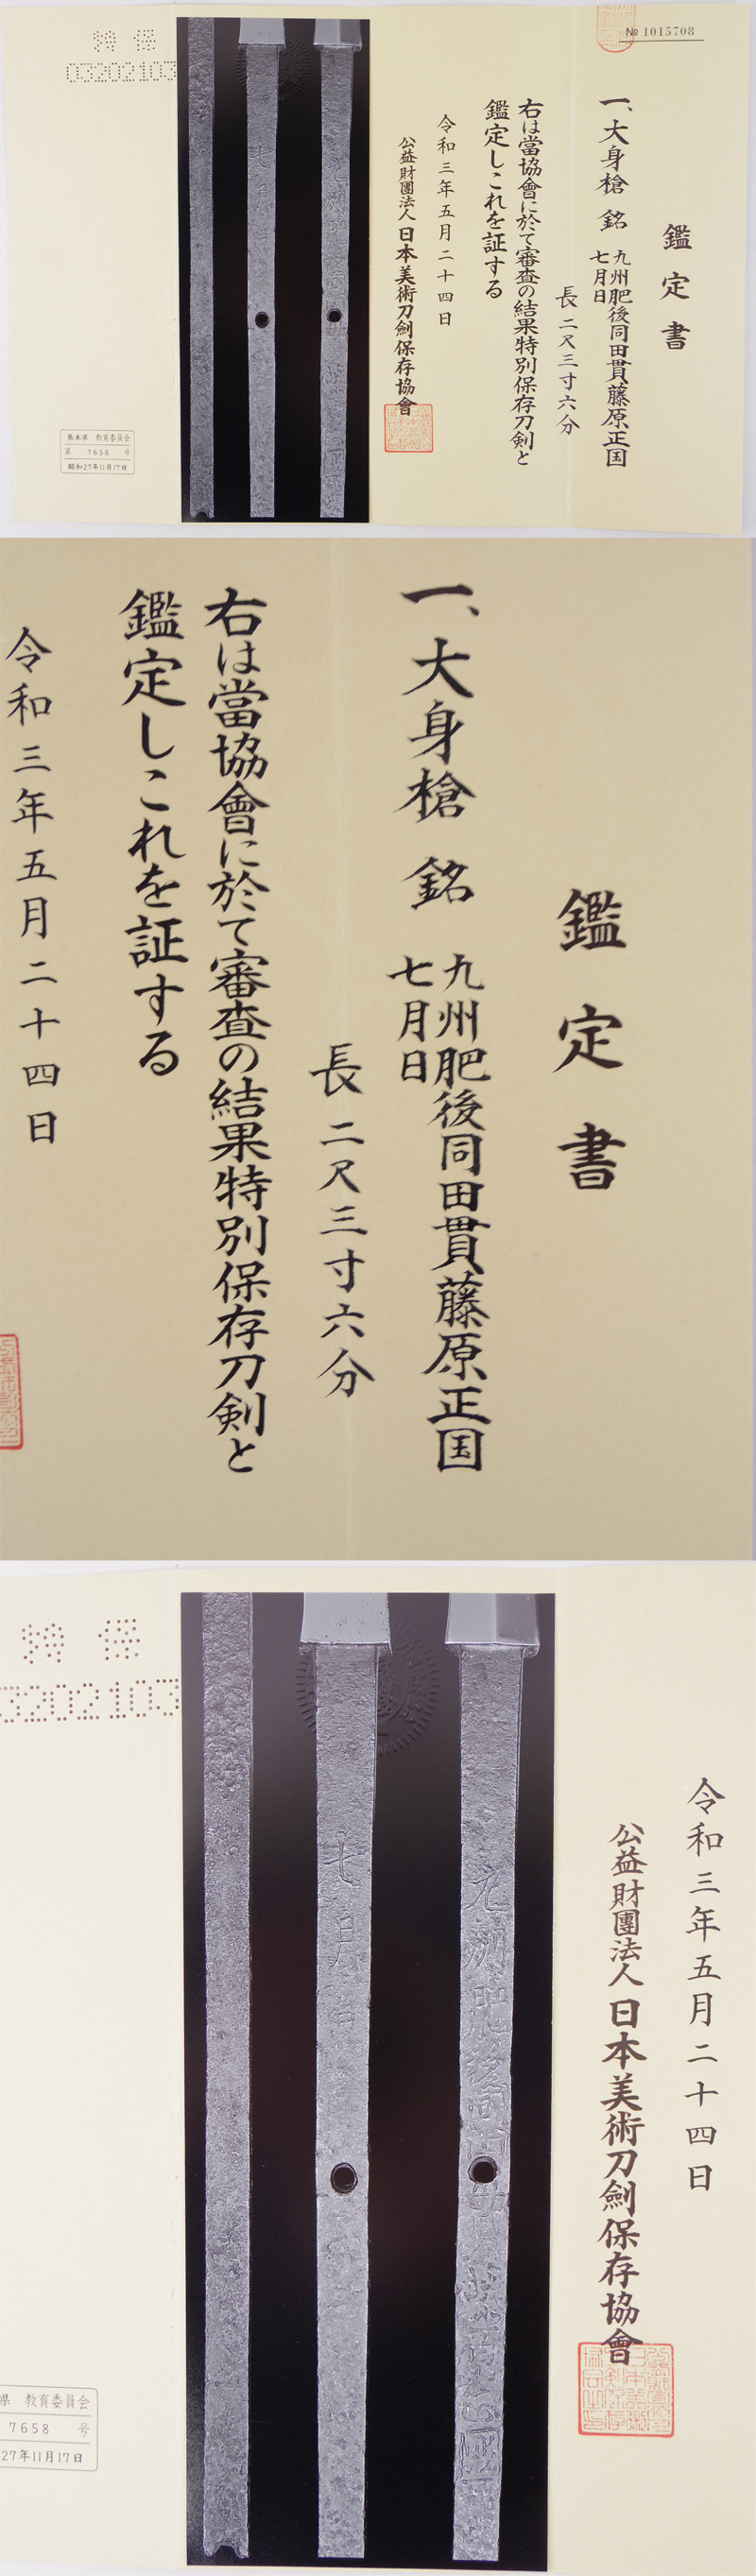 № 1015708
鑑定書
一、大身槍 銘 九州肥後同田貫藤原正国
七月日
長 二尺三寸六分
右は當協會に於て審査の結果特別保存刀剣と
鑑定しこれを証する
令和三年五月二十四日
公益財團法人 日本美術刀劍保存協會
特 保
03202103
熊本県 教育委員会
第 7658 号
昭和27年11月17日
鑑定書
一、大身槍 銘 九州肥後同田貫藤原正国
七月日
長 二尺三寸六分
右は當協會に於て審査の結果特別保存刀剣と
鑑定しこれを証する
令和三年五月二十四日
令和三年五月二十四日
公益財團法人 日本美術刀劍保存協會
九州肥後同田貫藤原正國
七月日
特 保
3202103
県 教育委員会
7658 号
27年11月17日